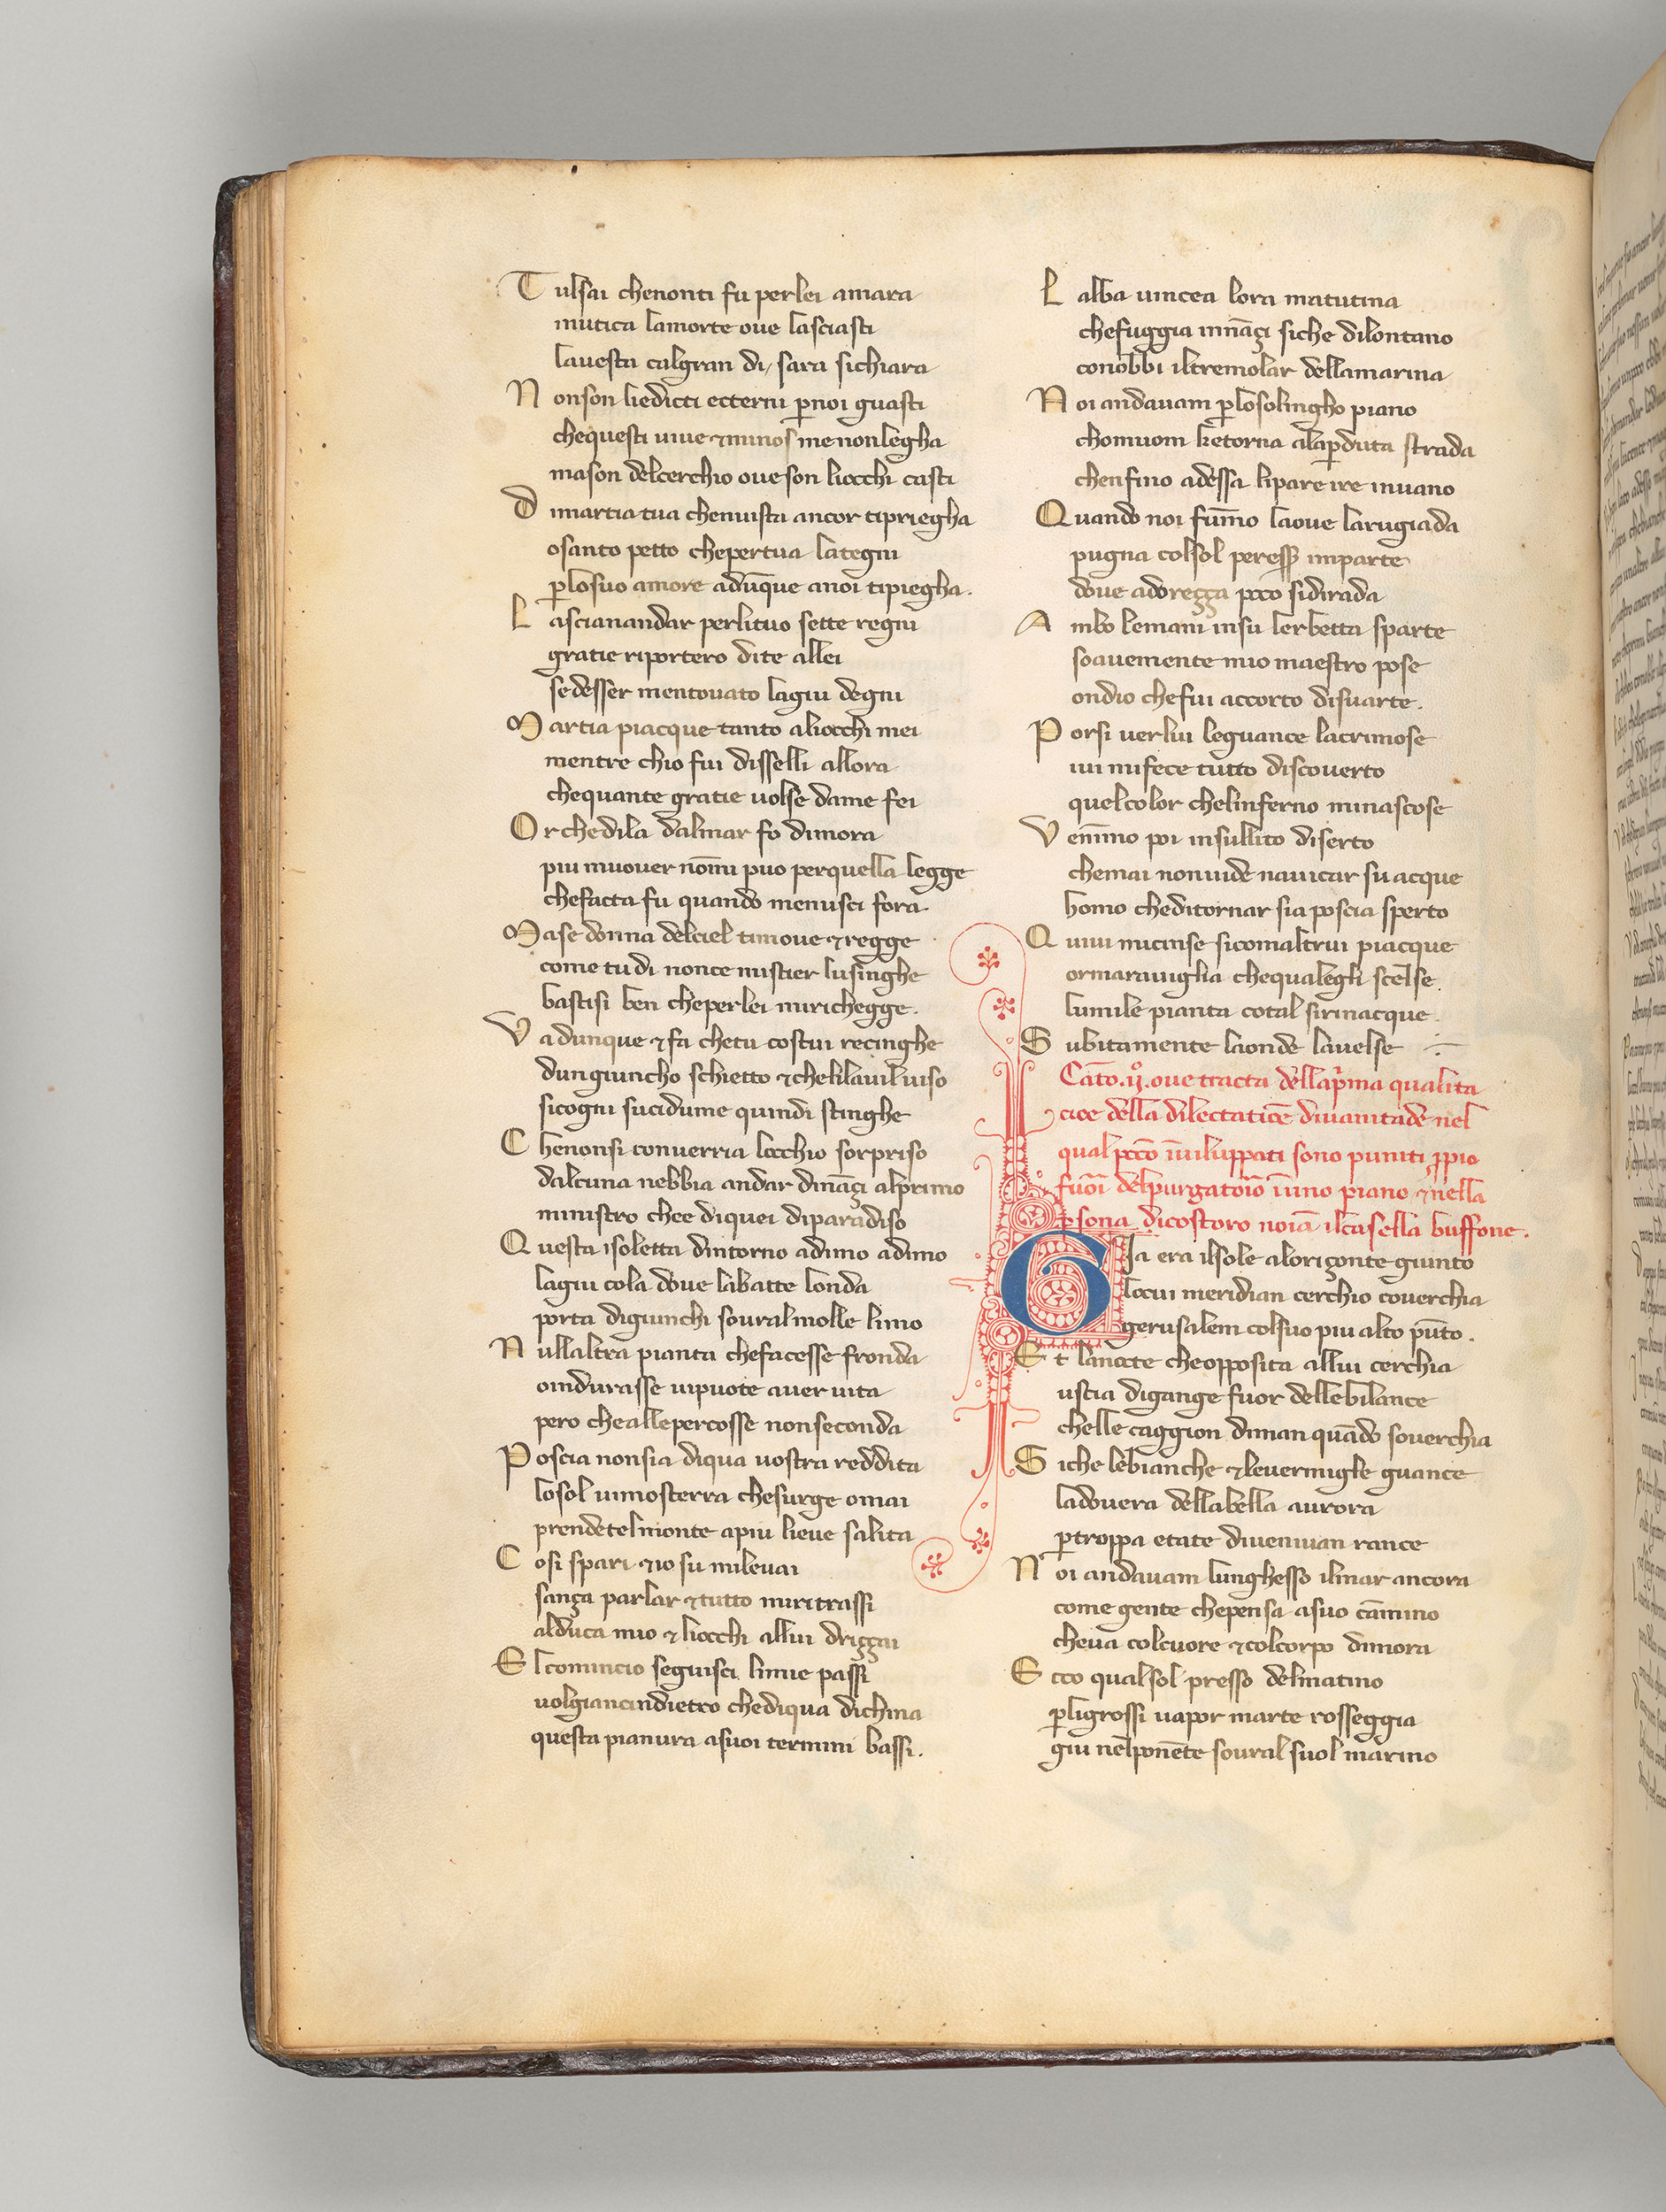 Tulsai chenonti fu perlei amara
inutica lamorte oue lasciasti
lauesta calgran di, sara sichiara
Nonson liedicti etterni p̱noi guasti
chequesti uiue ⁊minos menonlegha
mason delcerchio oueson liocchi casti
Dimartia tua chenuista ancor tipriegha
osanto petto chepertua lategni
p̱losuo amore adūque anoi tipiegha.
Lascianandar perlituo sette regni
gratie riportero dite allei
sedesser mentouato lagiu degni
Martia piacque tanto aliocchi mei
mentre chio fui disselli allora
chequante gratie uolse dame fei
Or chedila dalmar fo dimora
piu muouer nōmi puo perquella legge
chefacta fu quando menusci fora.
Mase donna delciel timoue ⁊regge
come tu di nonce mistier lusinghe
bastisi ben cheperlei mirichegge.
Vadunque ⁊fa chetu costui recinghe
dungiuncho schietto ⁊chelilauiluiso
sicogni sucidume quindi stinghe
Chenonsi conuerria locchio sorpriso
dalcuna nebbia andar dināçi alprimo
ministro chee diquei diparadiso
Questa isoletta dintorno adimo adimo
lagiu cola doue labatte londa
porta digiunchi soural molle limo
Nullaltra pianta chefacesse fronda
oindurasse uipuote auer uita
pero cheallepercosse nonseconda
Poscia nonsia diqua uostra reddita
losol uimosterra chesurge omai
prendetelmonte apiu lieue salita
Cosi spari ⁊io su mileuai
sança parlar ⁊tutto miritrassi
alduca mio ⁊liocchi allui driççai
El comincio seguisci limie passi
uolgiancindietro chediqua dichina
questa pianura asuoi termini bassi.
Lalba uincea lora matutina
chefuggia innāçi siche dilontano
conobbi iltremolar dellamarina
Noi andauam p̱losolingho piano
chomuom ketorna alap̱duta strada
chenfino adessa lipare ire inuano
Quando noi fūmo laoue larugiada
pugna colsol peress̱ inparte
doue adoreçça poco sidirada
Ambo lemani insu lerbetta sparte
soauemente mio maestro pose
ondio chefui accorto disuarte.
Porsi uerlui leguance lacrimose
iui mifece tutto discouerto
quelcolor chelinferno minascose
Venīmo poi insullito diserto
chemai nonuide nauicar su acque
homo cheditornar sia poscia sperto
Quiui micinse sicomaltrui piacque
ormarauiglia chequalegli scelse.
lumile pianta cotal sirinacque.
Subitamente laonde lauelse
Cāto.ij.oue tracta dellap̄ma qualita
cioe della dilectatiōe diuanitade nel
qual pcco īuiluppati sono puniti p̱pio
fuori delpurgatorio īuno piano ⁊nella
p̱sona dicostoro noīa ilcasella buffone.
Gia era ilsole aloriçonte giunto
locui meridian cerchio couerchia
gerusalem colsuo piu alto pūto.
Et lanocte cheopposita allui cerchia
uscia digange fuor dellebilance
chelle caggion diman quādo souerchia
Siche lebianche ⁊leuermiglie guance
ladouera dellabella aurora
p̱troppa etate diueniuan rance
Noi andauam lunghesso ilmar ancora
come gente chepensa asuo cāmino
cheua colcuore ⁊colcorpo dimora
Ecco qualsol presso delmatino
p̱ligrossi uapor marte rosseggia
giu nelponēte soural suol marino